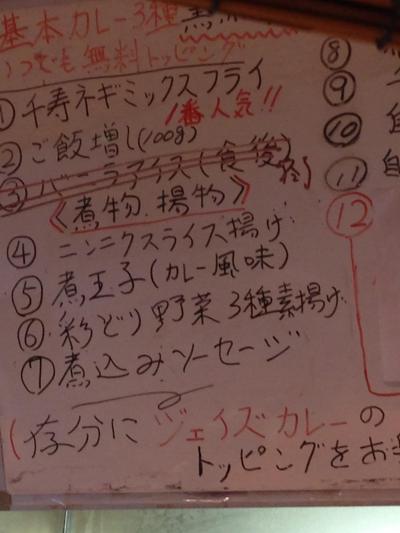 基本カレー3種
いつでも無料トッピング
① 千寿ネギミックスフライ
1番人気!!
② ご飯増し(100g)
③ バニラアイス(食後) 終了
《煮物、揚物》
④ ニンニクスライス揚げ
⑤ 煮玉子(カレー風味)
⑥ 彩どり野菜3種素揚げ
⑦ 煮込みソーセージ
(存分にジェイズカレーの
トッピングをお
⑧
⑨
⑩
⑪
⑫